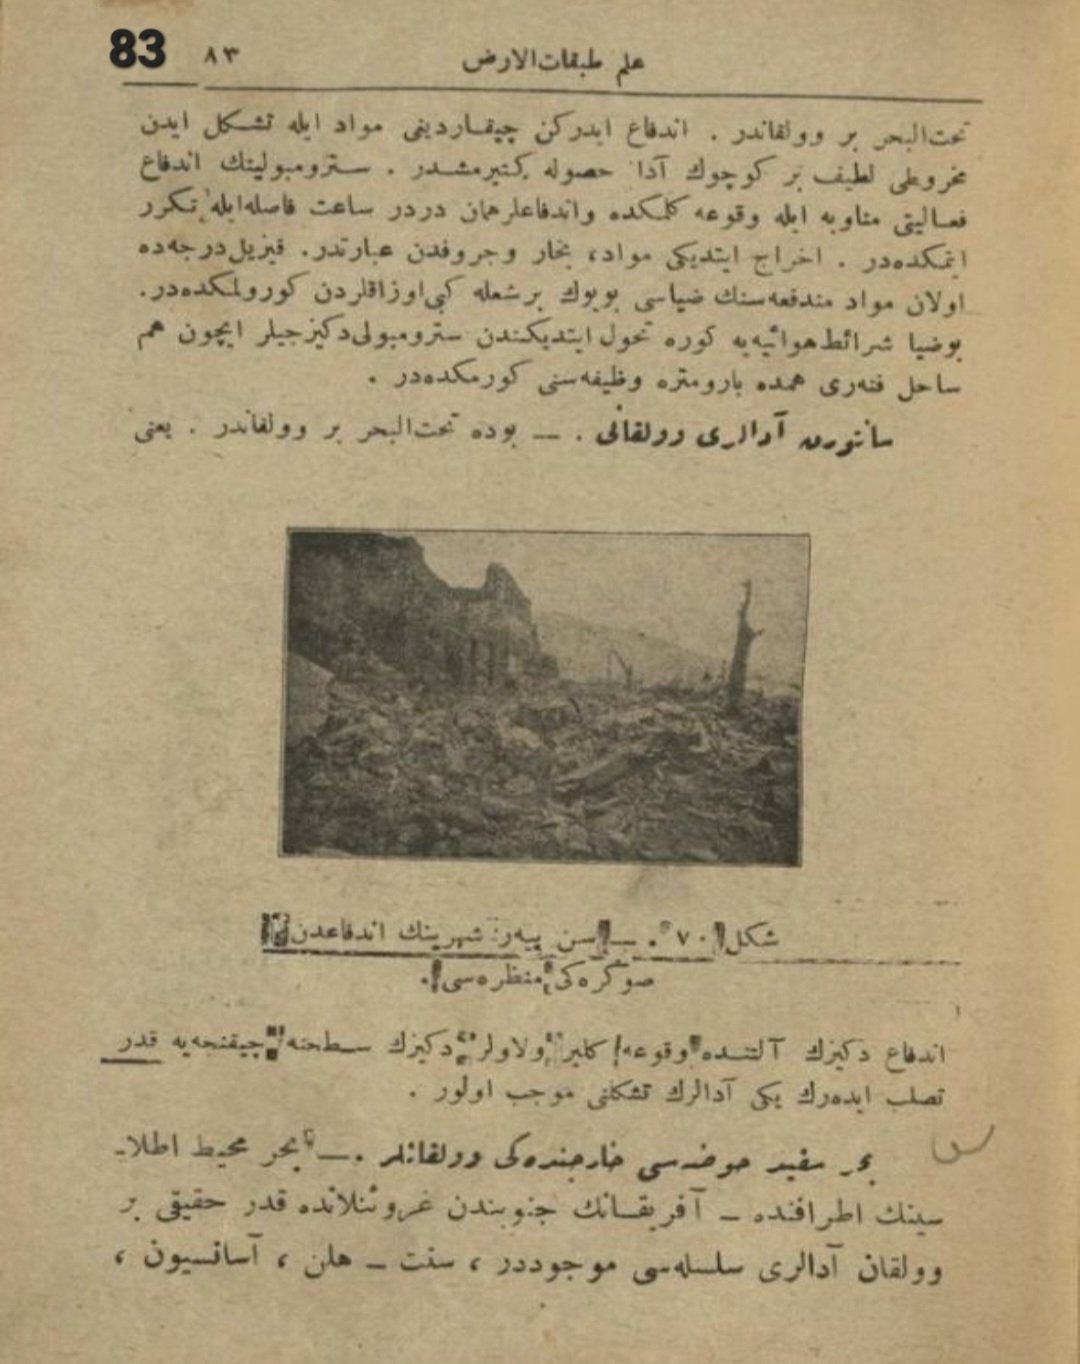 83 ٨٣ علم طبقات‌الارض
تحت‌البحر بر وولقاندر . اندفاع ایدركن چیقـاردیغی مواد ایله تشـكل ایدن
مخروطی لطیف بر كوچوك آدا حصوله كتیرمشـدر . سـترومبولینك اندفاع
فعـالیتی متاوبه ایله وقوعه كلمكده واندفاعلرهمان دردر ساعت فاصله‌ایله تـكرر
ایتمكده‌در . اخراج ایتدیكی مواد، بخار وجروفدن عبارتدر. قیزیل‌درجه‌ده
اولان مواد مندفعه‌سنك ضیاسی بویوك برشعله كبی‌اوزاقلردن كورولمكده‌در.
بوضیا شرائط‌هوائیه‌یه كوره تحول ایتدیكندن سترومبولی‌دكیزجیلر ایچون هم
ساحل فنه‌ری همده بارومتره وظیفه‌سنی كورمكده‌در .
سانتورن آدالری وولقانی . — بوده تحت‌البحر بر وولقاندر . یعنی
شكل ٧٠ . — سن پیه‌ر شهرینك اندفاعدن
صوكره‌كی منظره‌سی .
اندفاع دكیزك آلتنـده وقوعه كلیر ولاولر دكیزك سـطحنه چیقنجه‌یه قدر
تصلب ایده‌رك یكی آدالرك تشكلنی موجب اولور .
بحر سفید حوضه‌سی خارجنده‌كی وولقانلر . — بحر محیط اطلا-
سینك اطرافنده — آفریقـانك جنوبندن غروئنلانده قدر حقیقی بر
وولقان آدالری سلسله‌سی موجوددر ، سنت — هلن ، آسانسیون ،